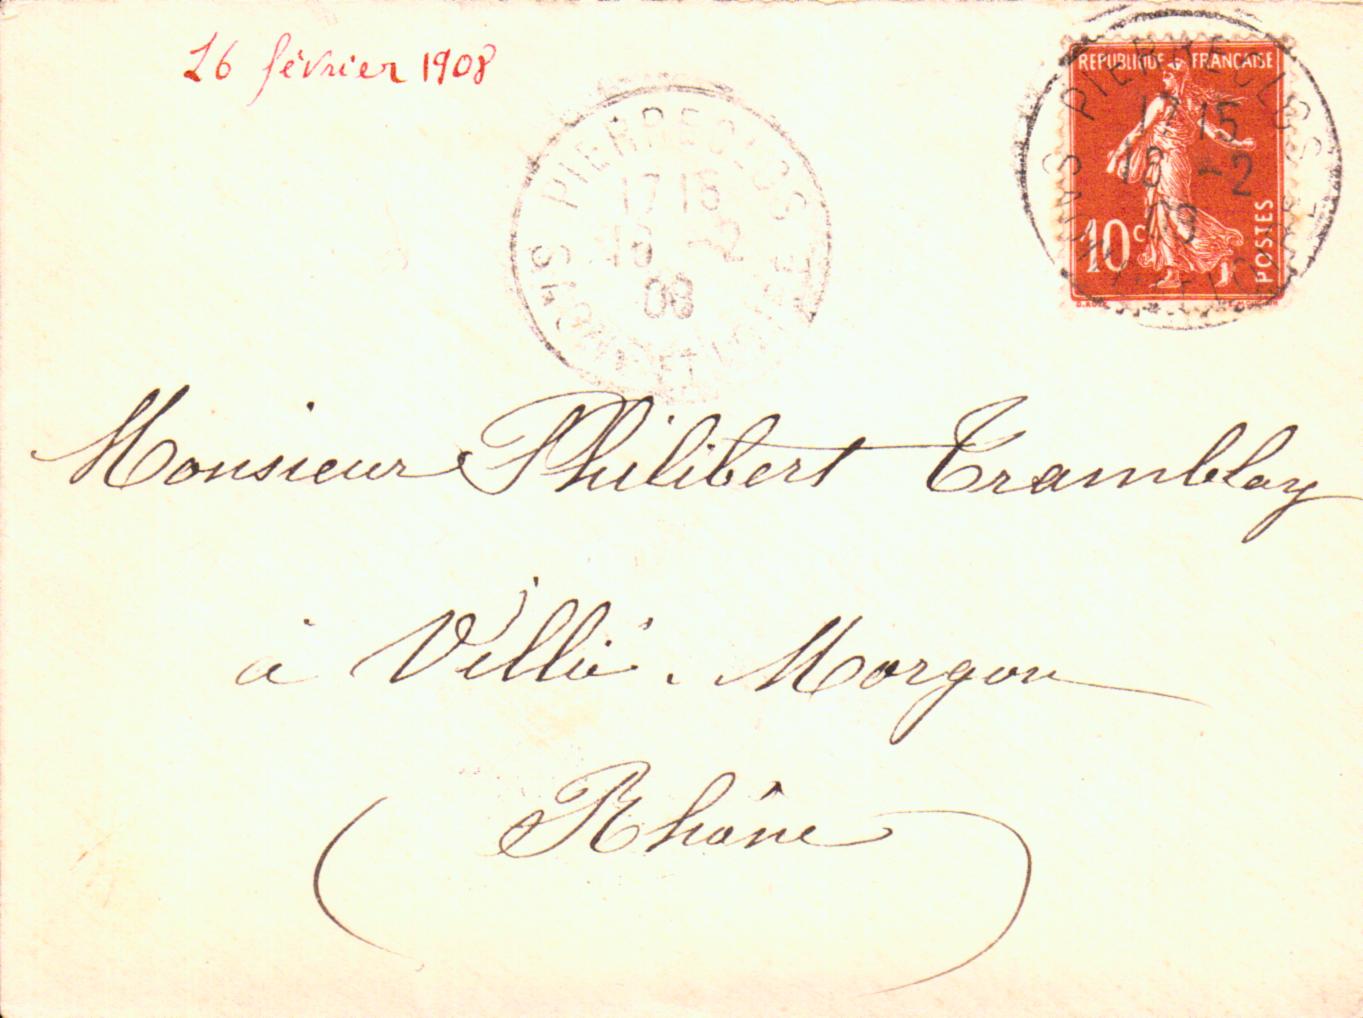 16 février 1908
PIERRECLOS
17 15
18 -2
08
SAÔNE-ET-LOIRE
REPUBLIQUE FRANÇAISE
10c
POSTES
PIERRECLOS
17 15
18 -2
Monsieur Philibert Tramblay
à Villié-Morgon
(Rhône)